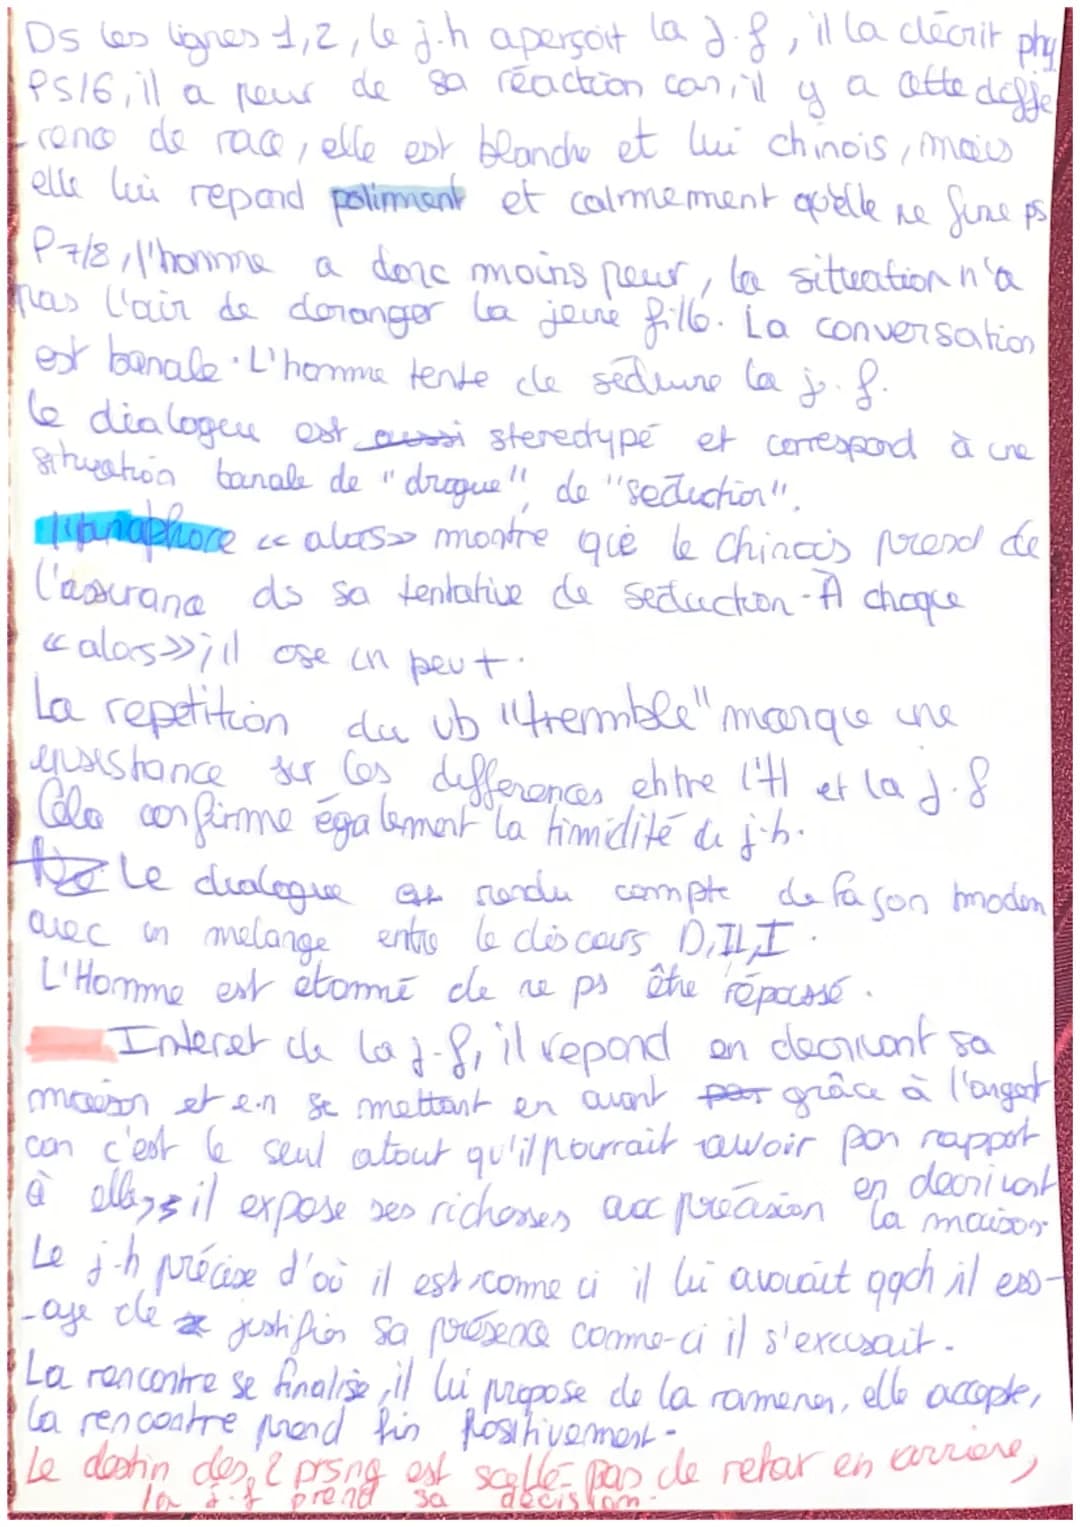 Ds les lignes 1,2, le j.h aperçoit la j.f, il la décrit phy
PS/6, il a peur de sa réaction car, il y a cette diffé
-rence de race, elle est blanche et lui chinois, mais
elle lui repond poliment et calmement qu'elle ne fume ps
P 7/8, l'homme a donc moins peur, la situation n'a
pas l'air de doranger la jeune fille. La conversation
est banale. L'homme tente de seduire la j.f.
le dialogue est aussi stereotypé et correspond à une
situation banale de "drague", de "seduction".
l'anaphore « alors » montre que le Chinois prend de
l'assurance ds sa tentative de seduction. À chaque
« alors », il ose un peu +.
La repetition du vb "tremble" marque une
insistance sur les differences entre l'H et la j.f
Cela confirme également la timidité du j.h.
Le dialogue est rendu compte de façon modern
avec un melange entre le discours D, IL, I.
L'Homme est étonné de ne ps être repoussé.
Interet de la j.f, il repond en decrivant sa
maison et en se mettant en avant par grâce à l'argent
car c'est le seul atout qu'il pourrait avoir par rapport
à elle, il expose ses richesses avec précision en decrivant
la maison.
Le j.h précise d'où il est comme ci il lui avouait qqch il ess-
-aye de justifier sa présence comme-ci il s'excusait.
La rencontre se finalise, il lui propose de la ramener, elle accepte,
la rencontre prend fin positivement.
Le destin des 2 prsng est scellé - pas de retour en arriere,
la j.f prend sa decision.